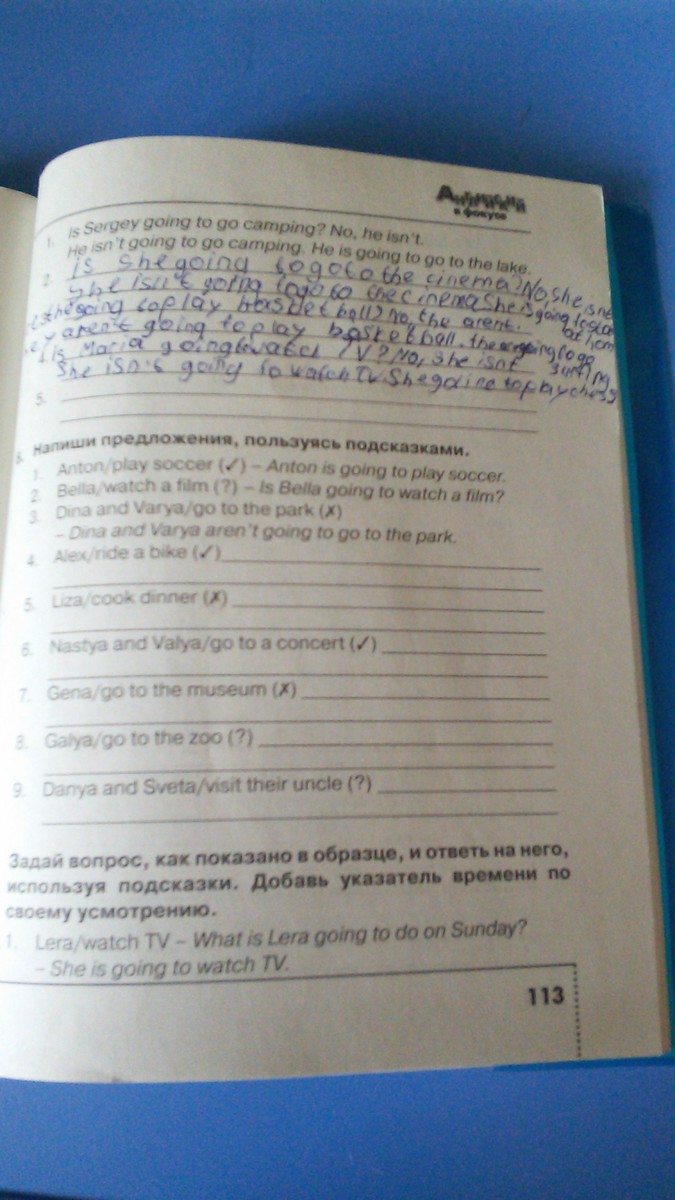 АНГЛИЙСКИЙ
в фокусе
1. Is Sergey going to go camping? No, he isn't.
He isn't going to go camping. He is going to go to the lake.
2. Is she going to go to the cinema? No, she isnt
She isn't going to go to the cinema She is going to stay
at home
going to play basletball? No, the arent.
aren't going to play basketball. the going to go
surfing
Is Maria going to watch TV? No, she isnt
She isn't going to watch TV. She going to play chess
5.
Напиши предложения, пользуясь подсказками.
1. Anton/play soccer (✓) – Anton is going to play soccer.
2. Bella/watch a film (?) – Is Bella going to watch a film?
3. Dina and Varya/go to the park (✗)
– Dina and Varya aren't going to go to the park.
4. Alex/ride a bike (✓)
5. Liza/cook dinner (✗)
6. Nastya and Valya/go to a concert (✓)
7. Gena/go to the museum (✗)
8. Galya/go to the zoo (?)
9. Danya and Sveta/visit their uncle (?)
Задай вопрос, как показано в образце, и ответь на него,
используя подсказки. Добавь указатель времени по
своему усмотрению.
1. Lera/watch TV – What is Lera going to do on Sunday?
– She is going to watch TV.
113